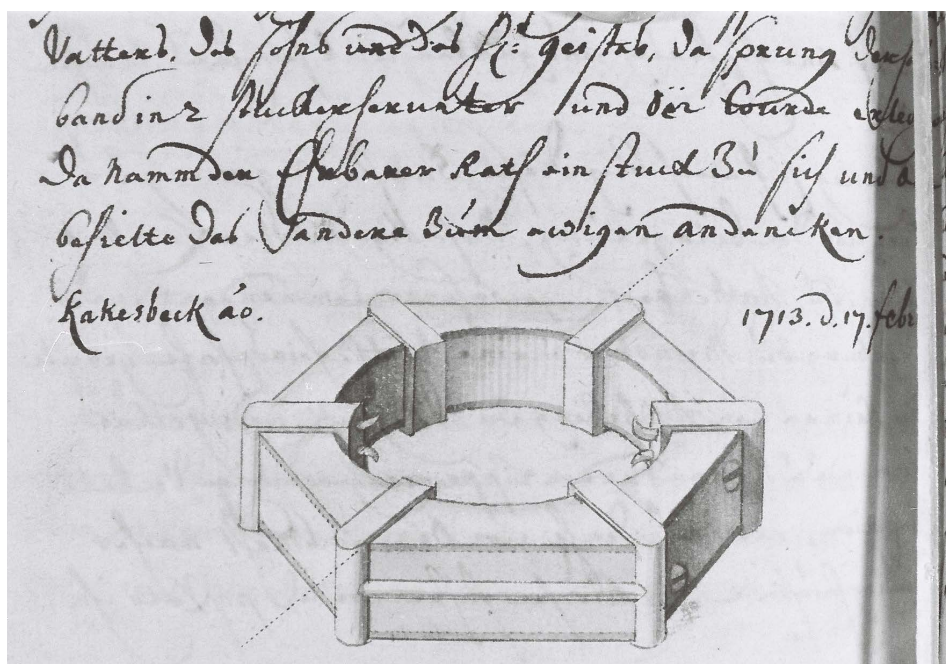 Vatters, des Sohns und des H: geistes, da sprung
band in 2 stucker herunter und
Da Namm der Ehrbarer Rath ein stuck Zu sich und
behielte das andere Zum ewigen andencken.
Kakesbeck ao. 1713. d. 17. febr